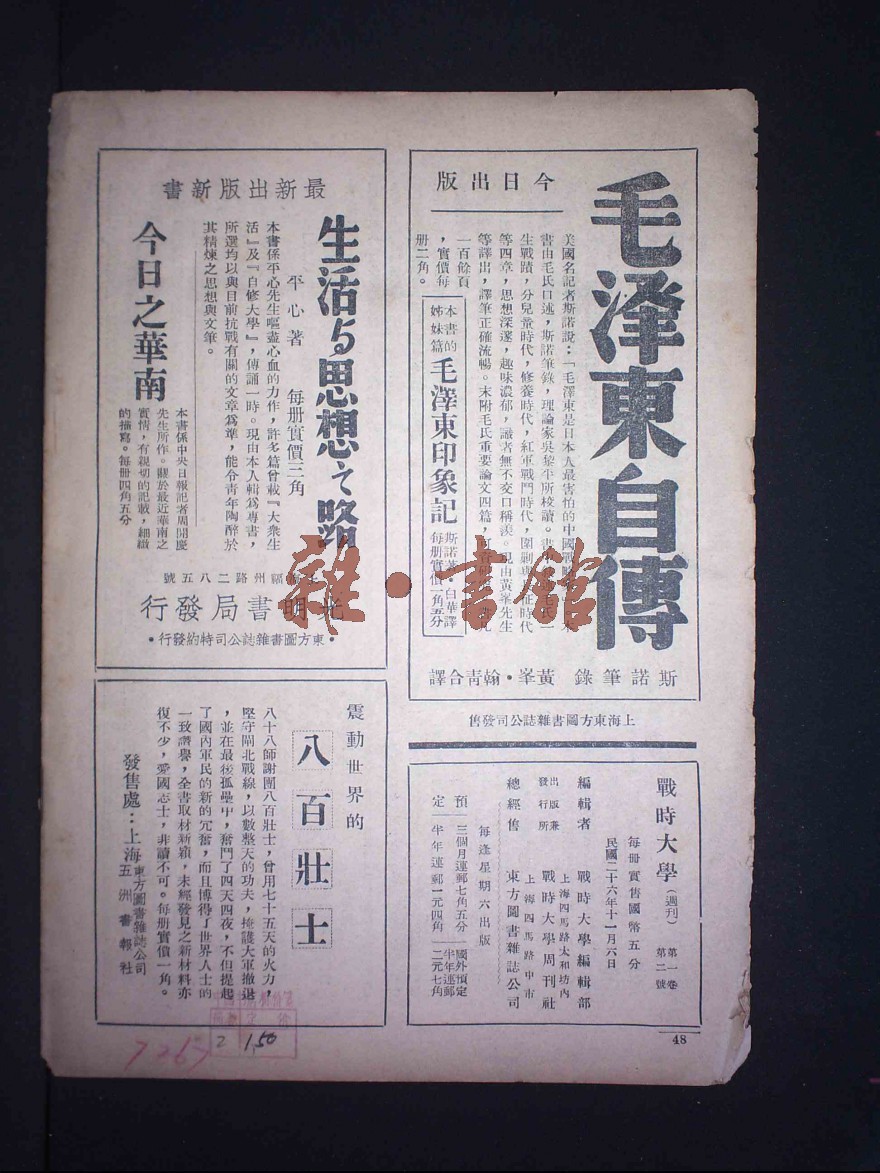 毛澤東自傳
今日出版
美國名記者斯諾說：「毛澤東是日本人最害怕的中國戰
書由毛氏口述，斯諾筆錄，理論家吳黎平所校讀。
生戰蹟，分兒童時代，修養時代，紅軍戰鬥時代，圍剿
征時代
等四章，思想深邃，趣味濃郁，讀者無不交口稱羨。現由黃峯先生
等譯出，譯筆正確流暢。末附毛氏重要論文四篇，
一百餘頁
，實價每
册二角。
本書的
姊妹篇
毛澤東印象記
斯諾著
白華譯
每册實價一角五分
斯諾筆錄 黃峯・翰青合譯
上海東方圖書雜誌公司發售
最新出版新書
生活与思想之路
平心著 每册實價三角
本書係平心先生嘔盡心血的力作，許多篇曾載『大衆生
活』及『自修大學』，傳誦一時。現由本人輯爲專書，
所選均以與目前抗戰有關的文章爲準，能令青年陶醉於
其精煉之思想與文筆。
今日之華南
本書係中央日報記者周開慶
先生所作。關於最近華南之
實情，有親切的記載，細緻
的描寫。每冊四角五分
福州路二八五號
光明書局發行
・東方圖書雜誌公司特約發行・
戰時大學（週刊） 第一卷 第二號
每册實售國幣五分
民國二十六年十一月六日
編輯者 戰時大學編輯部
上海四馬路太和坊內
出版兼
發行所
戰時大學周刊社
上海四馬路中市
總經售 東方圖書雜誌公司
每逢星期六出版
預定
三個月連郵七角五分
半年連郵一元四角
國外預定
半年連郵
二元七角
震動世界的
八百壯士
八十八師謝團八百壯士，曾用七十五天的火力，
堅守閘北戰線，以數整天的功夫，掩護大軍撤退
，並在最後孤壘中，奮鬥了四天四夜，不但提起
了國內軍民的新的冗奮，而且博得了世界人士的
一致讚譽，全書取材新穎，未經發見之新材料亦
復不少，愛國志士，非讀不可。每册實價一角。
發售處：上海
東方圖書雜誌公司
五洲書報社
48
雜・書館
2
1.50
7263